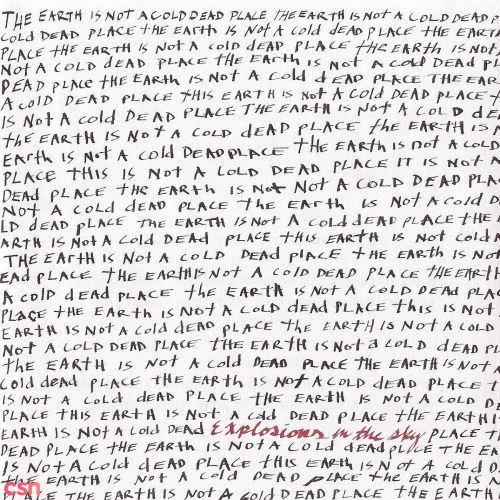 THE EARTH IS NOT A COLD DEAD PLACE THE EARTH IS NOT A COLD DEAD
COLD DEAD PLACE THE EARTH IS NOT A COLD DEAD PLACE THE EARTH
PLACE THE EARTH IS NOT A COLD DEAD PLACE THE EARTH IS NOT
NOT A COLD DEAD PLACE THE EARTH IS NOT A COLD DEAD
DEAD PLACE THE EARTH IS NOT A COLD DEAD PLACE THE EAR
A COLD DEAD PLACE THIS EARTH IS NOT A COLD DEAD PLACE
IS NOT A COLD DEAD PLACE THE EARTH IS NOT A COLD DE
THE EARTH IS NOT A COLD DEAD PLACE THE EARTH IS
EARTH IS NOT A COLD DEAD PLACE THE EARTH IS NOT A COLD
PLACE THIS IS NOT A COLD DEAD PLACE IT IS NOT A
DEAD PLACE THE EARTH IS NOT NOT A COLD DEAD PLA
NOT A COLD DEAD PLACE THE EARTH IS NOT A COLD D
LD DEAD PLACE THE EARTH IS NOT A COLD DEAD PLACE THE
ARTH IS NOT A COLD DEAD PLACE THIS EARTH IS NOT COLD
THE EARTH IS NOT A COLD DEAD PLACE THE EARTH IS NOT
EAD PLACE THE EARTH IS NOT A COLD DEAD PLACE THE EARTH
A COLD DEAD PLACE THE EARTH IS NOT A COLD DEAD PLA
PLACE THE EARTH IS NOT A COLD DEAD PLACE THIS IS NOT
EARTH IS NOT A COLD DEAD PLACE THE EARTH IS NOT A COLD
NOT A COLD DEAD PLACE THE EARTH IS NOT A COLD DEAD
THE EARTH IS NOT A COLD DEAD PLACE THE EARTH IS NOT A
COLD DEAD PLACE THE EARTH IS NOT A COLD DEAD PLACE
IS NOT A COLD DEAD PLACE THE EARTH IS NOT A COLD D
PLACE THIS EARTH IS NOT A COLD DEAD PLACE THE EARTH
EARTH IS NOT A COLD DEAD Explosions in the sky PLACE T
DEAD PLACE THE EARTH IS NOT A COLD DEAD PLACE THE EA
IS NOT A COLD DEAD PLACE THIS EARTH IS NOT A COLD DEA
THE EARTH IS NOT A COLD DEAD PLACE THE EARTH IS
csn
PLACE THE EARTH IS NOT A COLD DEAD PLACE THE EARTH